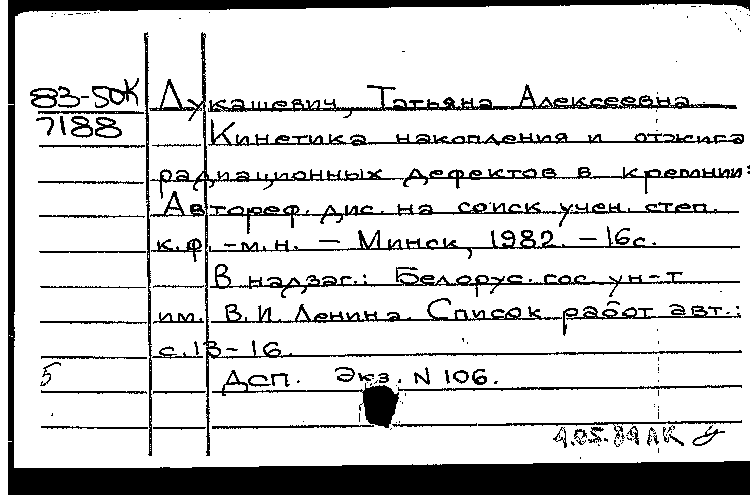 83-50К
7188
Лукашевич, Татьяна Алексеевна
Кинетика накопления и отжига
радиационных дефектов в кремнии:
Автореф. дис. на соиск учен. степ.
к.ф.-м.н. – Минск, 1982. – 16с.
В надзаг.: Белорус. гос. ун-т
им. В.И. Ленина. Список работ авт.:
с.13-16.
5
Дсп. Экз. N 106.